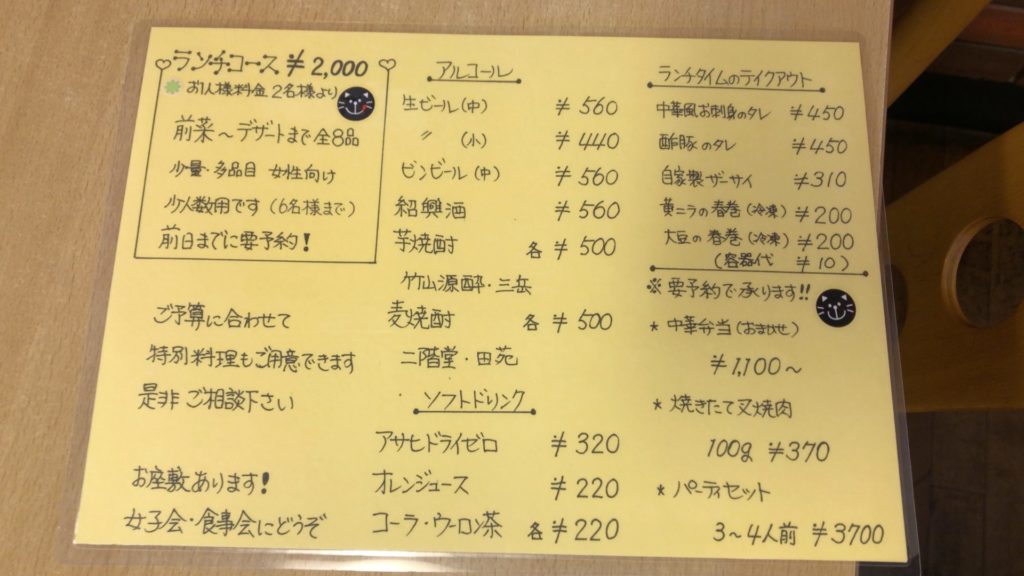 ランチコース ¥2,000
お1人様料金 2名様より
前菜～デザートまで全8品
少量・多品目 女性向け
少人数用です(6名様まで)
前日までに要予約!
ご予算に合わせて
特別料理もご用意できます
是非ご相談下さい
お座敷あります!
女子会・食事会にどうぞ
アルコール
生ビール(中) ¥560
〃 (小) ¥440
ビンビール(中) ¥560
紹興酒 ¥560
芋焼酎 各¥500
竹山源酔・三岳
麦焼酎 各¥500
二階堂・田苑
ソフトドリンク
アサヒドライゼロ ¥320
オレンジュース ¥220
コーラ・ウーロン茶 各¥220
ランチタイムのテイクアウト
中華風お刺身のタレ ¥450
酢豚のタレ ¥450
自家製ザーサイ ¥310
黄ニラの春巻(冷凍) ¥200
大豆の春巻(冷凍) ¥200
(容器代 ¥10)
※要予約で承ります!!
* 中華弁当(おまかせ)
¥1,100～
* 焼きたて叉焼肉
100g ¥370
* パーティセット
3～4人前 ¥3700